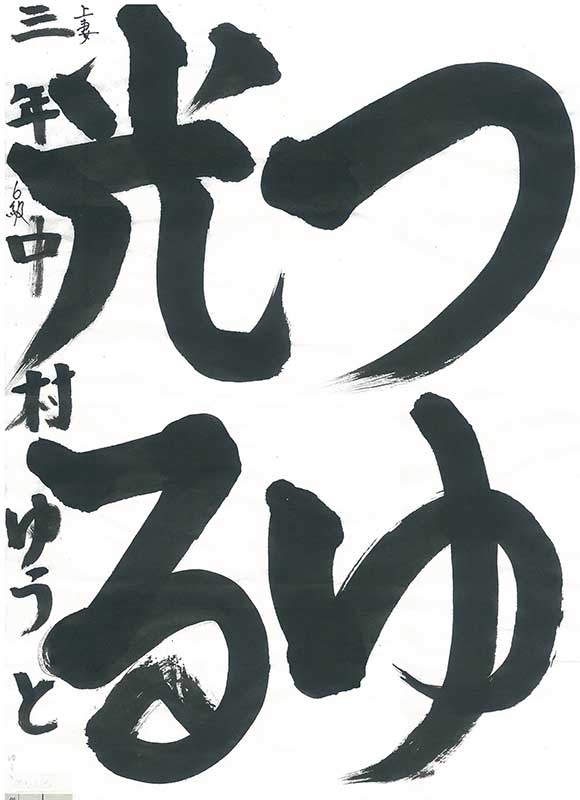 つゆ
光る
三年中村ゆうと
上妻
6級